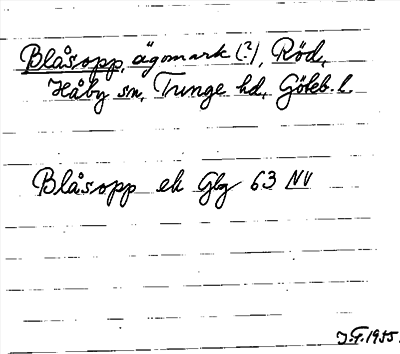 Blåsopp, ägomark (?), Röd,
Håby sn, Tunge hd, Göteb. l.
Blåsopp ek Glg 63 NV
J.G. 1955.